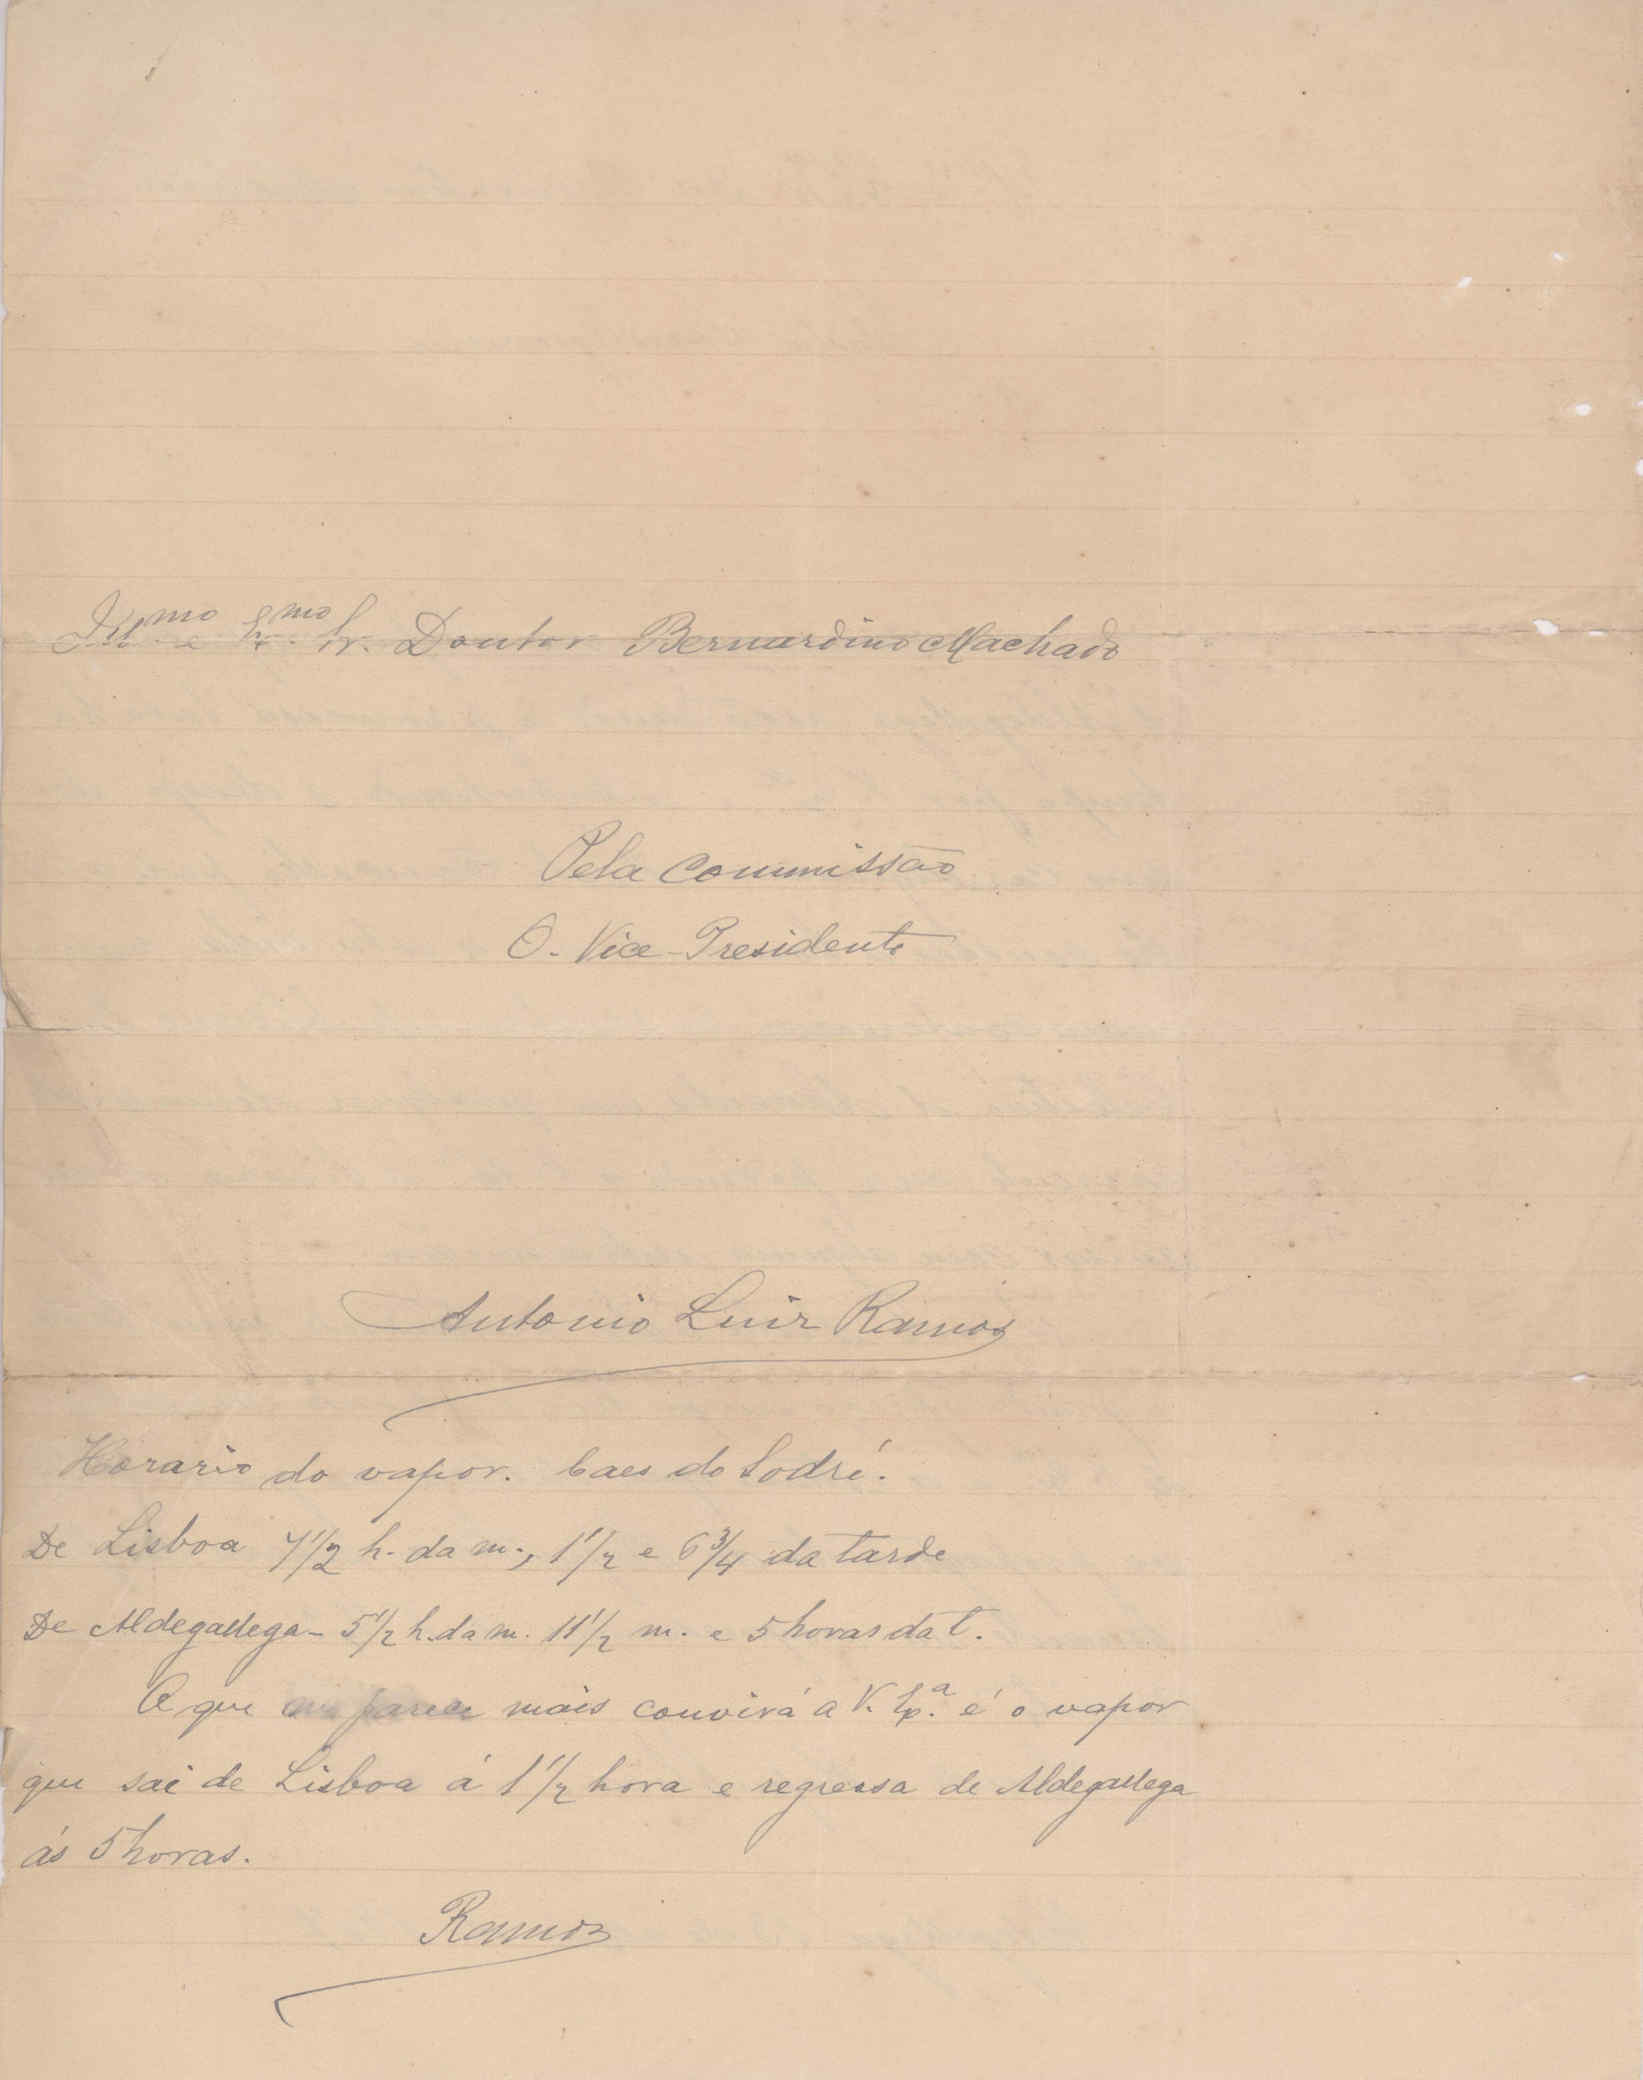 Ill.mo e Ex.mo Sr. Doutor Bernardino Machado
Pela Commissão
O. Vice-Presidente
Antonio Luiz Ramos
Horario do vapor. Caes do Sodré.
De Lisboa 7 1/2 h. da m., 1 1/2 e 6 3/4 da tarde
De Aldegallega - 5 1/2 h. da m. 11 1/2 m. e 5 horas da t.
O que me parece mais convirá a V. Ex.a é o vapor
que sai de Lisboa á 1 1/2 hora e regressa de Aldegallega
ás 5 horas.
Ramos